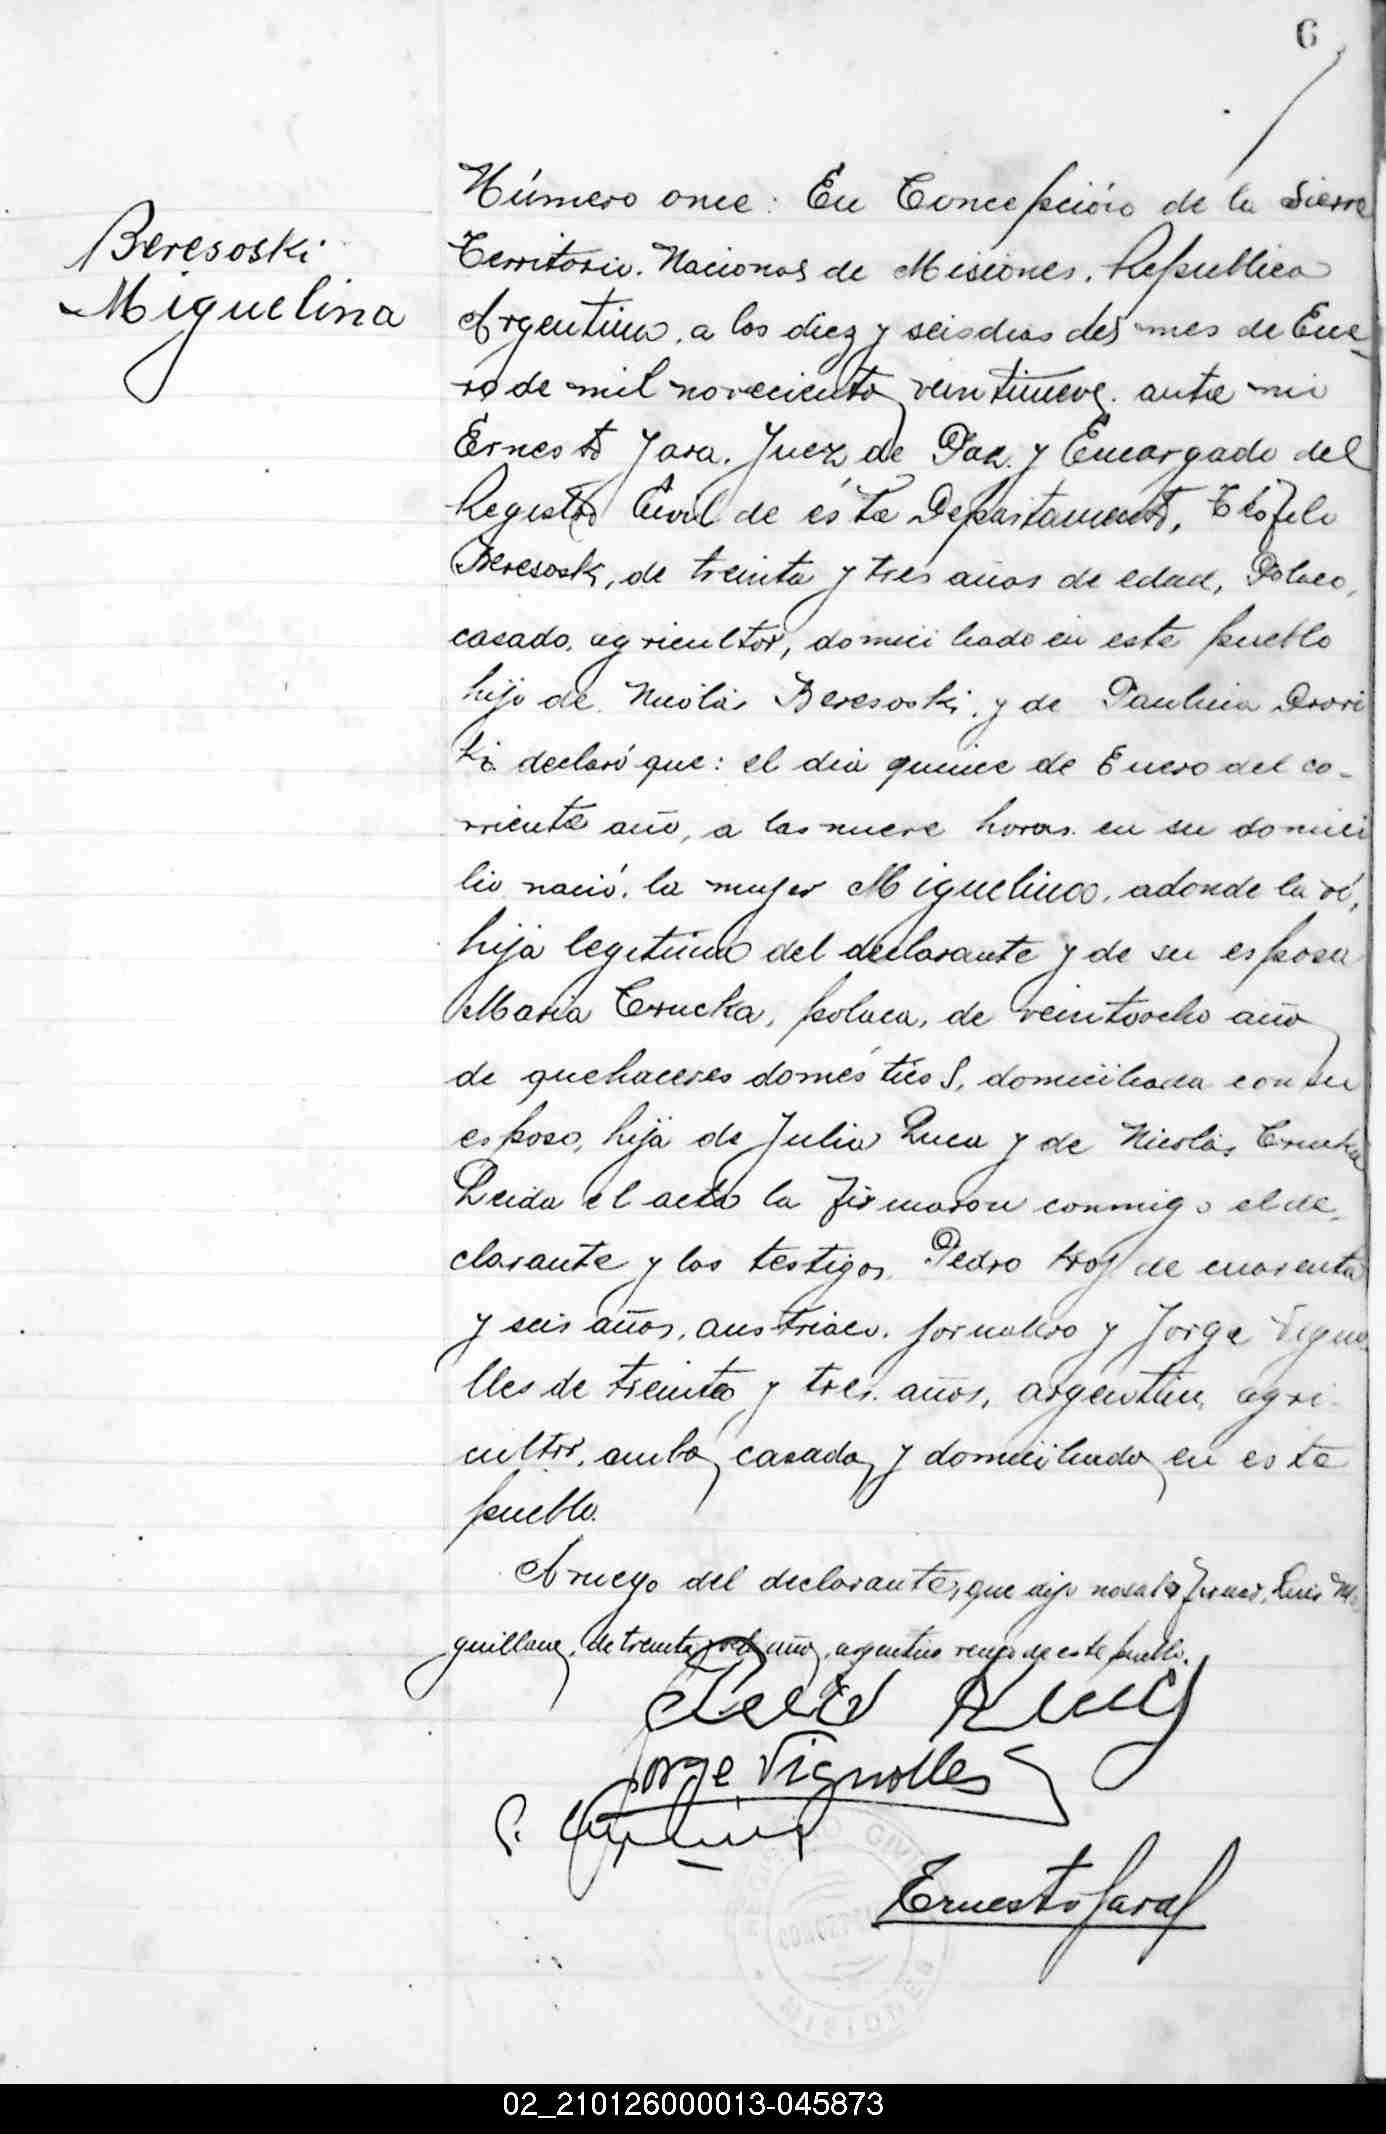 6
Beresoski
Miguelina
Número once: En Concepción de la Sierra
Territorio Nacional de Misiones, Republica
Argentina, a los diez y seis dias del mes de Ene-
ro de mil novecientos veintinueve, ante mi
Ernesto Jara, Juez de Paz y Encargado del
Registro Civil de éste Departamento, Teófilo
Beresoski, de treinta y tres años de edad, Polaco,
casado, agricultor, domiciliado en este pueblo
hijo de Nicolás Beresoski, y de Paulina
declaró que: el dia quince de Enero del co-
rriente año, a las nueve horas en su domici
lio nació, la mujer Miguelina, adonde la ví,
hija legitima del declarante y de su esposa
Maria Crucka, polaca, de veintiocho años
de quehaceres domésticos, domiciliada con su
esposo, hija de Julia Luca y de Nicolás Crucka
Leida el acta la firmaron conmigo el de-
clarante y los testigos Pedro de cuarenta
y seis años, austriaco, jornalero y Jorge Vigno
lles de treinta y tres años, argentino, agri-
cultor, ambos casados y domiciliados en este
pueblo.
A ruego del declarante, que dijo no saber firmar, Luis
de treinta años, argentino vecino de este pueblo.
Jorge Vignolles
Ernesto Jara
REGISTRO CIVIL
CONCEPCION
MISIONES
02_210126000013-045873